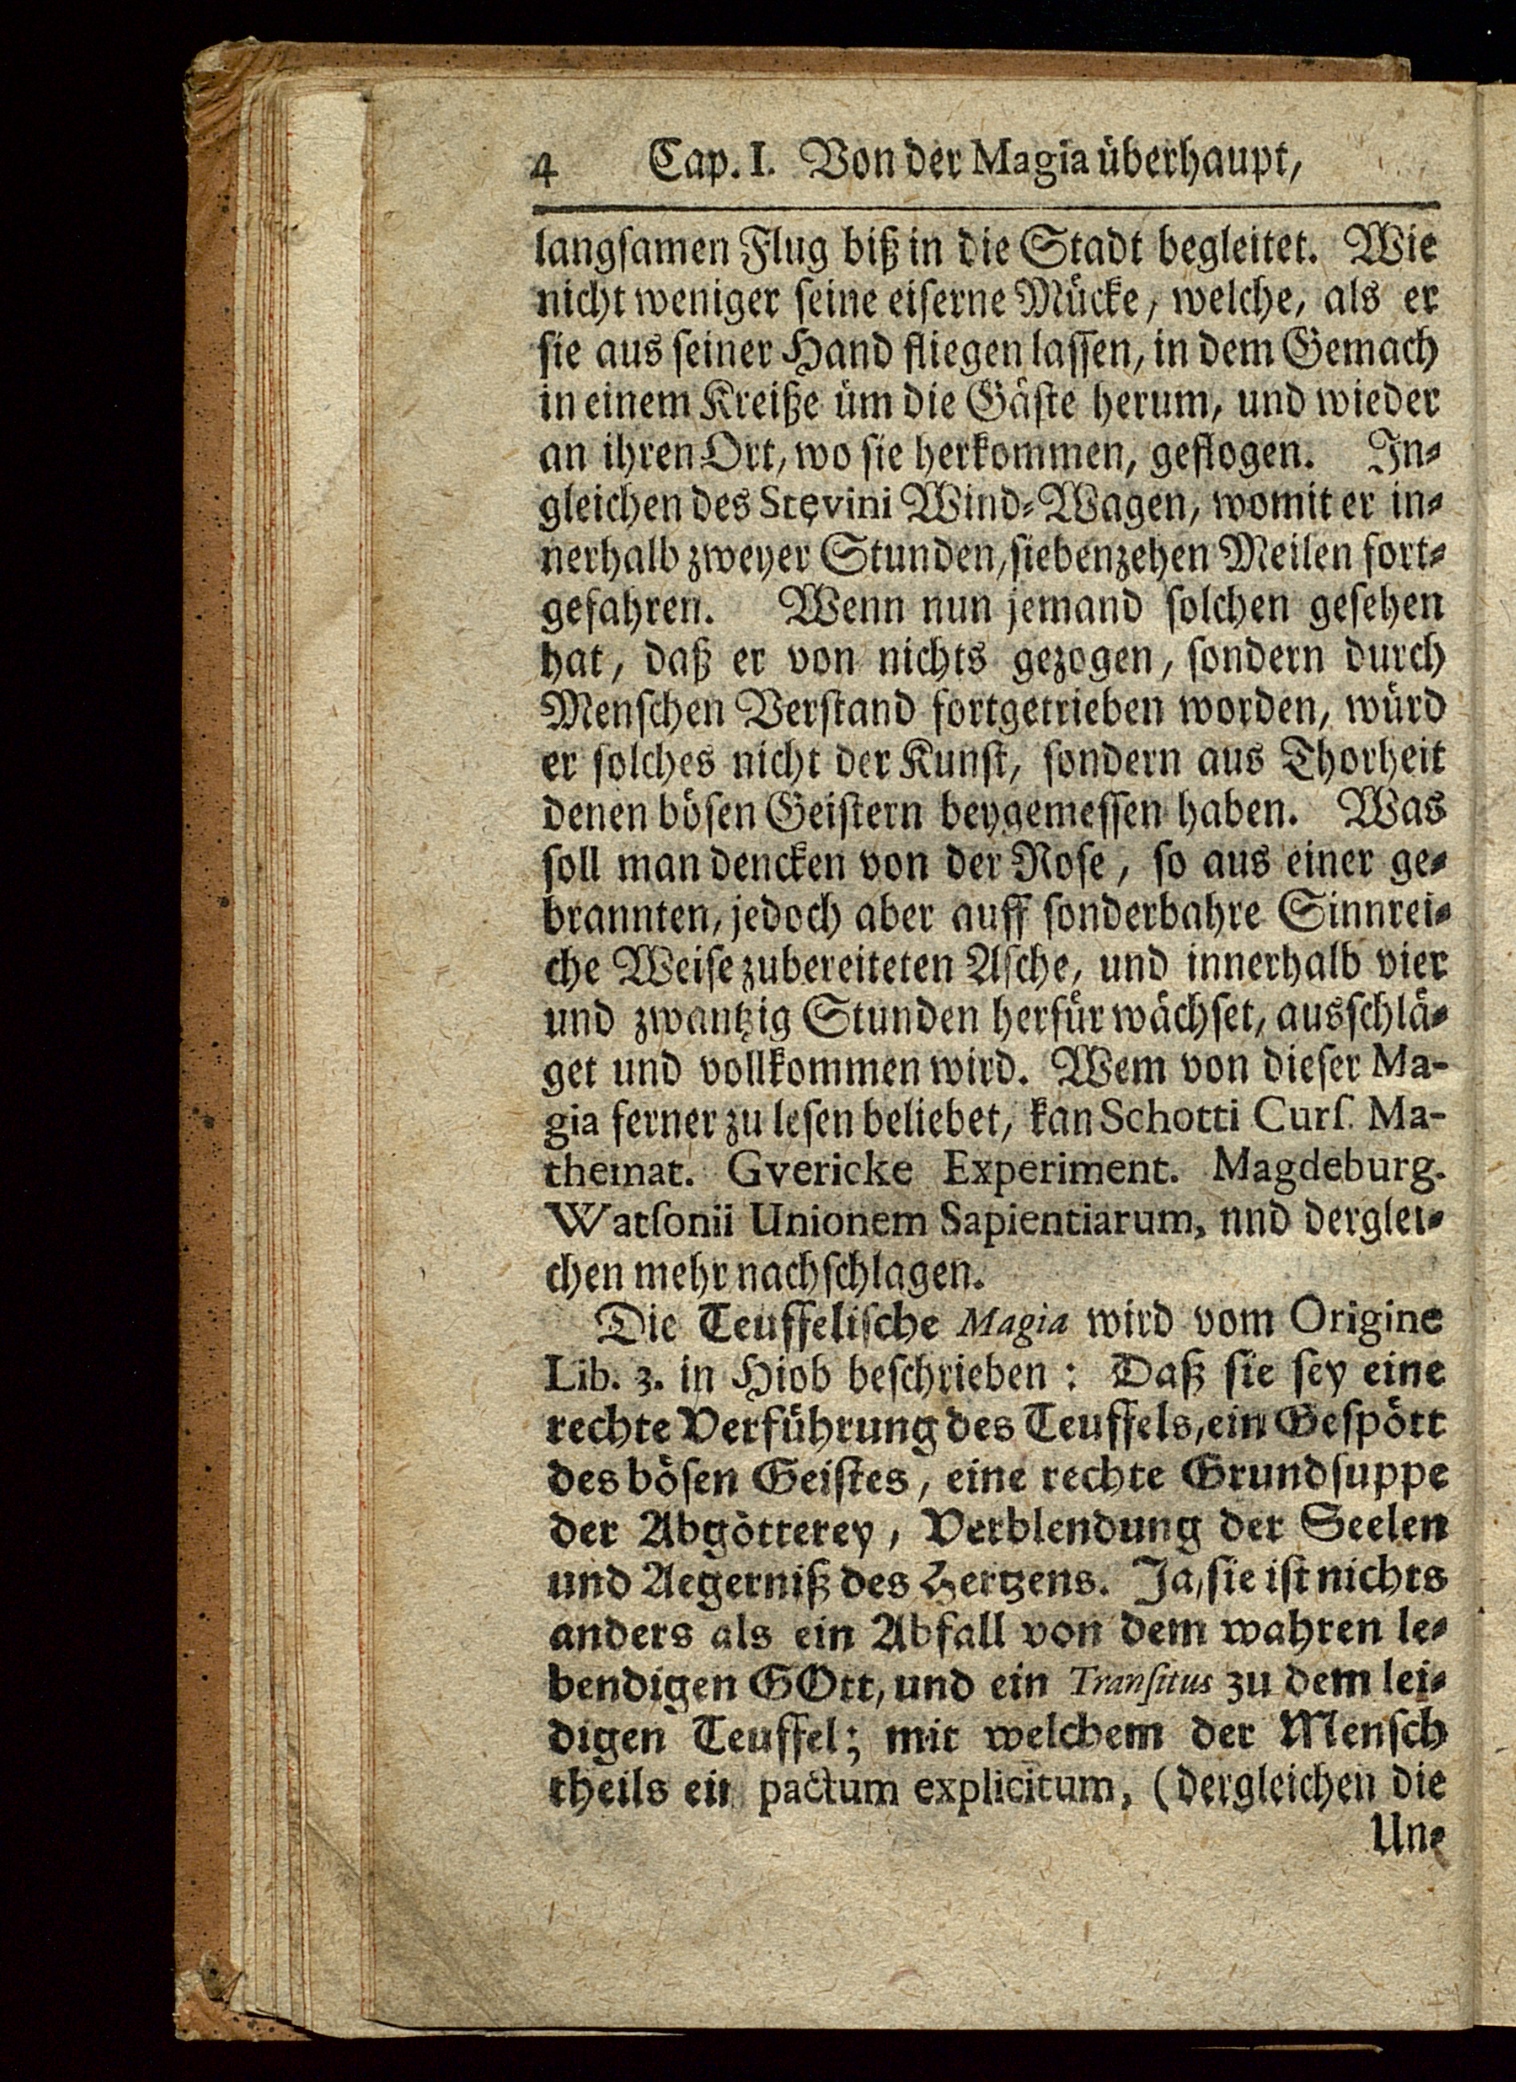 4 Cap. I. Von der Magia überhaupt,
langsamen Flug biß in die Stadt begleitet. Wie
nicht weniger seine eiserne Mücke, welche, als er
sie aus seiner Hand fliegen lassen, in dem Gemach
in einem Kreiße üm die Gäste herum, und wieder
an ihren Ort, wo sie herkommen, geflogen. In-
gleichen des Stęvini Wind-Wagen, womit er in-
nerhalb zweyer Stunden, siebenzehen Meilen fort-
gefahren. Wenn nun jemand solchen gesehen
hat, daß er von nichts gezogen, sondern durch
Menschen Verstand fortgetrieben worden, würd
er solches nicht der Kunst, sondern aus Thorheit
denen bösen Geistern beygemessen haben. Was
soll man dencken von der Rose, so aus einer ge-
brannten, jedoch aber auff sonderbahre Sinnrei-
che Weise zubereiteten Asche, und innerhalb vier
und zwantzig Stunden herfür wächset, ausschlä-
get und vollkommen wird. Wem von dieser Ma-
gia ferner zu lesen beliebet, kan Schotti Curſ. Ma-
themat. Gvericke Experiment. Magdeburg.
Watſonii Unionem Sapientiarum, nnd derglei-
chen mehr nachschlagen.
Die Teuffelische Magia wird vom Origine
Lib. 3. in Hiob beschrieben: Daß sie sey eine
rechte Verführung des Teuffels, ein Gespött
des bösen Geistes, eine rechte Grundsuppe
der Abgötterey, Verblendung der Seelen
und Aegerniß des Hertzens. Ja, sie ist nichts
anders als ein Abfall von dem wahren le-
bendigen GOtt, und ein Tranſitus zu dem lei-
digen Teuffel; mit welchem der Mensch
theils ein pactum explicitum, (dergleichen die
Un-